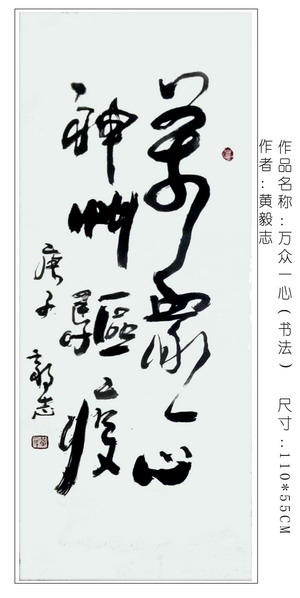 萬眾一心
神州驅疫
庚子
毅志
作品名称:万众一心(书法) 尺寸:110*55CM
作者:黄毅志